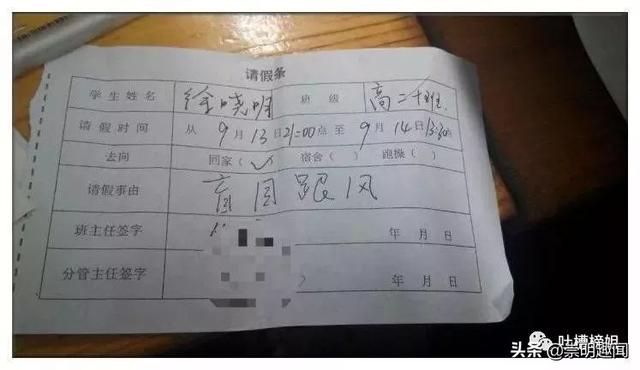 请假条
学生姓名 徐晓明 班级 高二十班
请假时间 从9月13日21:00点至9月14日13:30点
去向 回家(✓) 宿舍( ) 跑操( )
请假事由 盲目跟风
班主任签字 年月日
分管主任签字 年月日
吐槽榜姐
头条@崇明趣闻